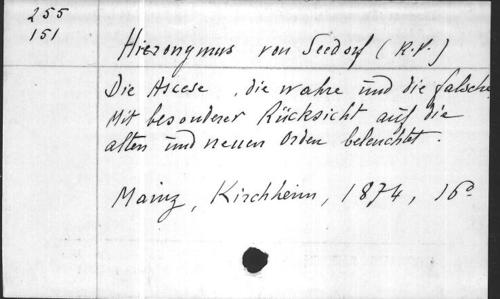 255
151
Hieronymus von Seedorf (R.P.)
Die Ascese, die wahre und die falsche.
Mit besonderer Rücksicht auf die
alten und neuen Orden beleuchtet.
Mainz, Kirchheim, 1874, 16°